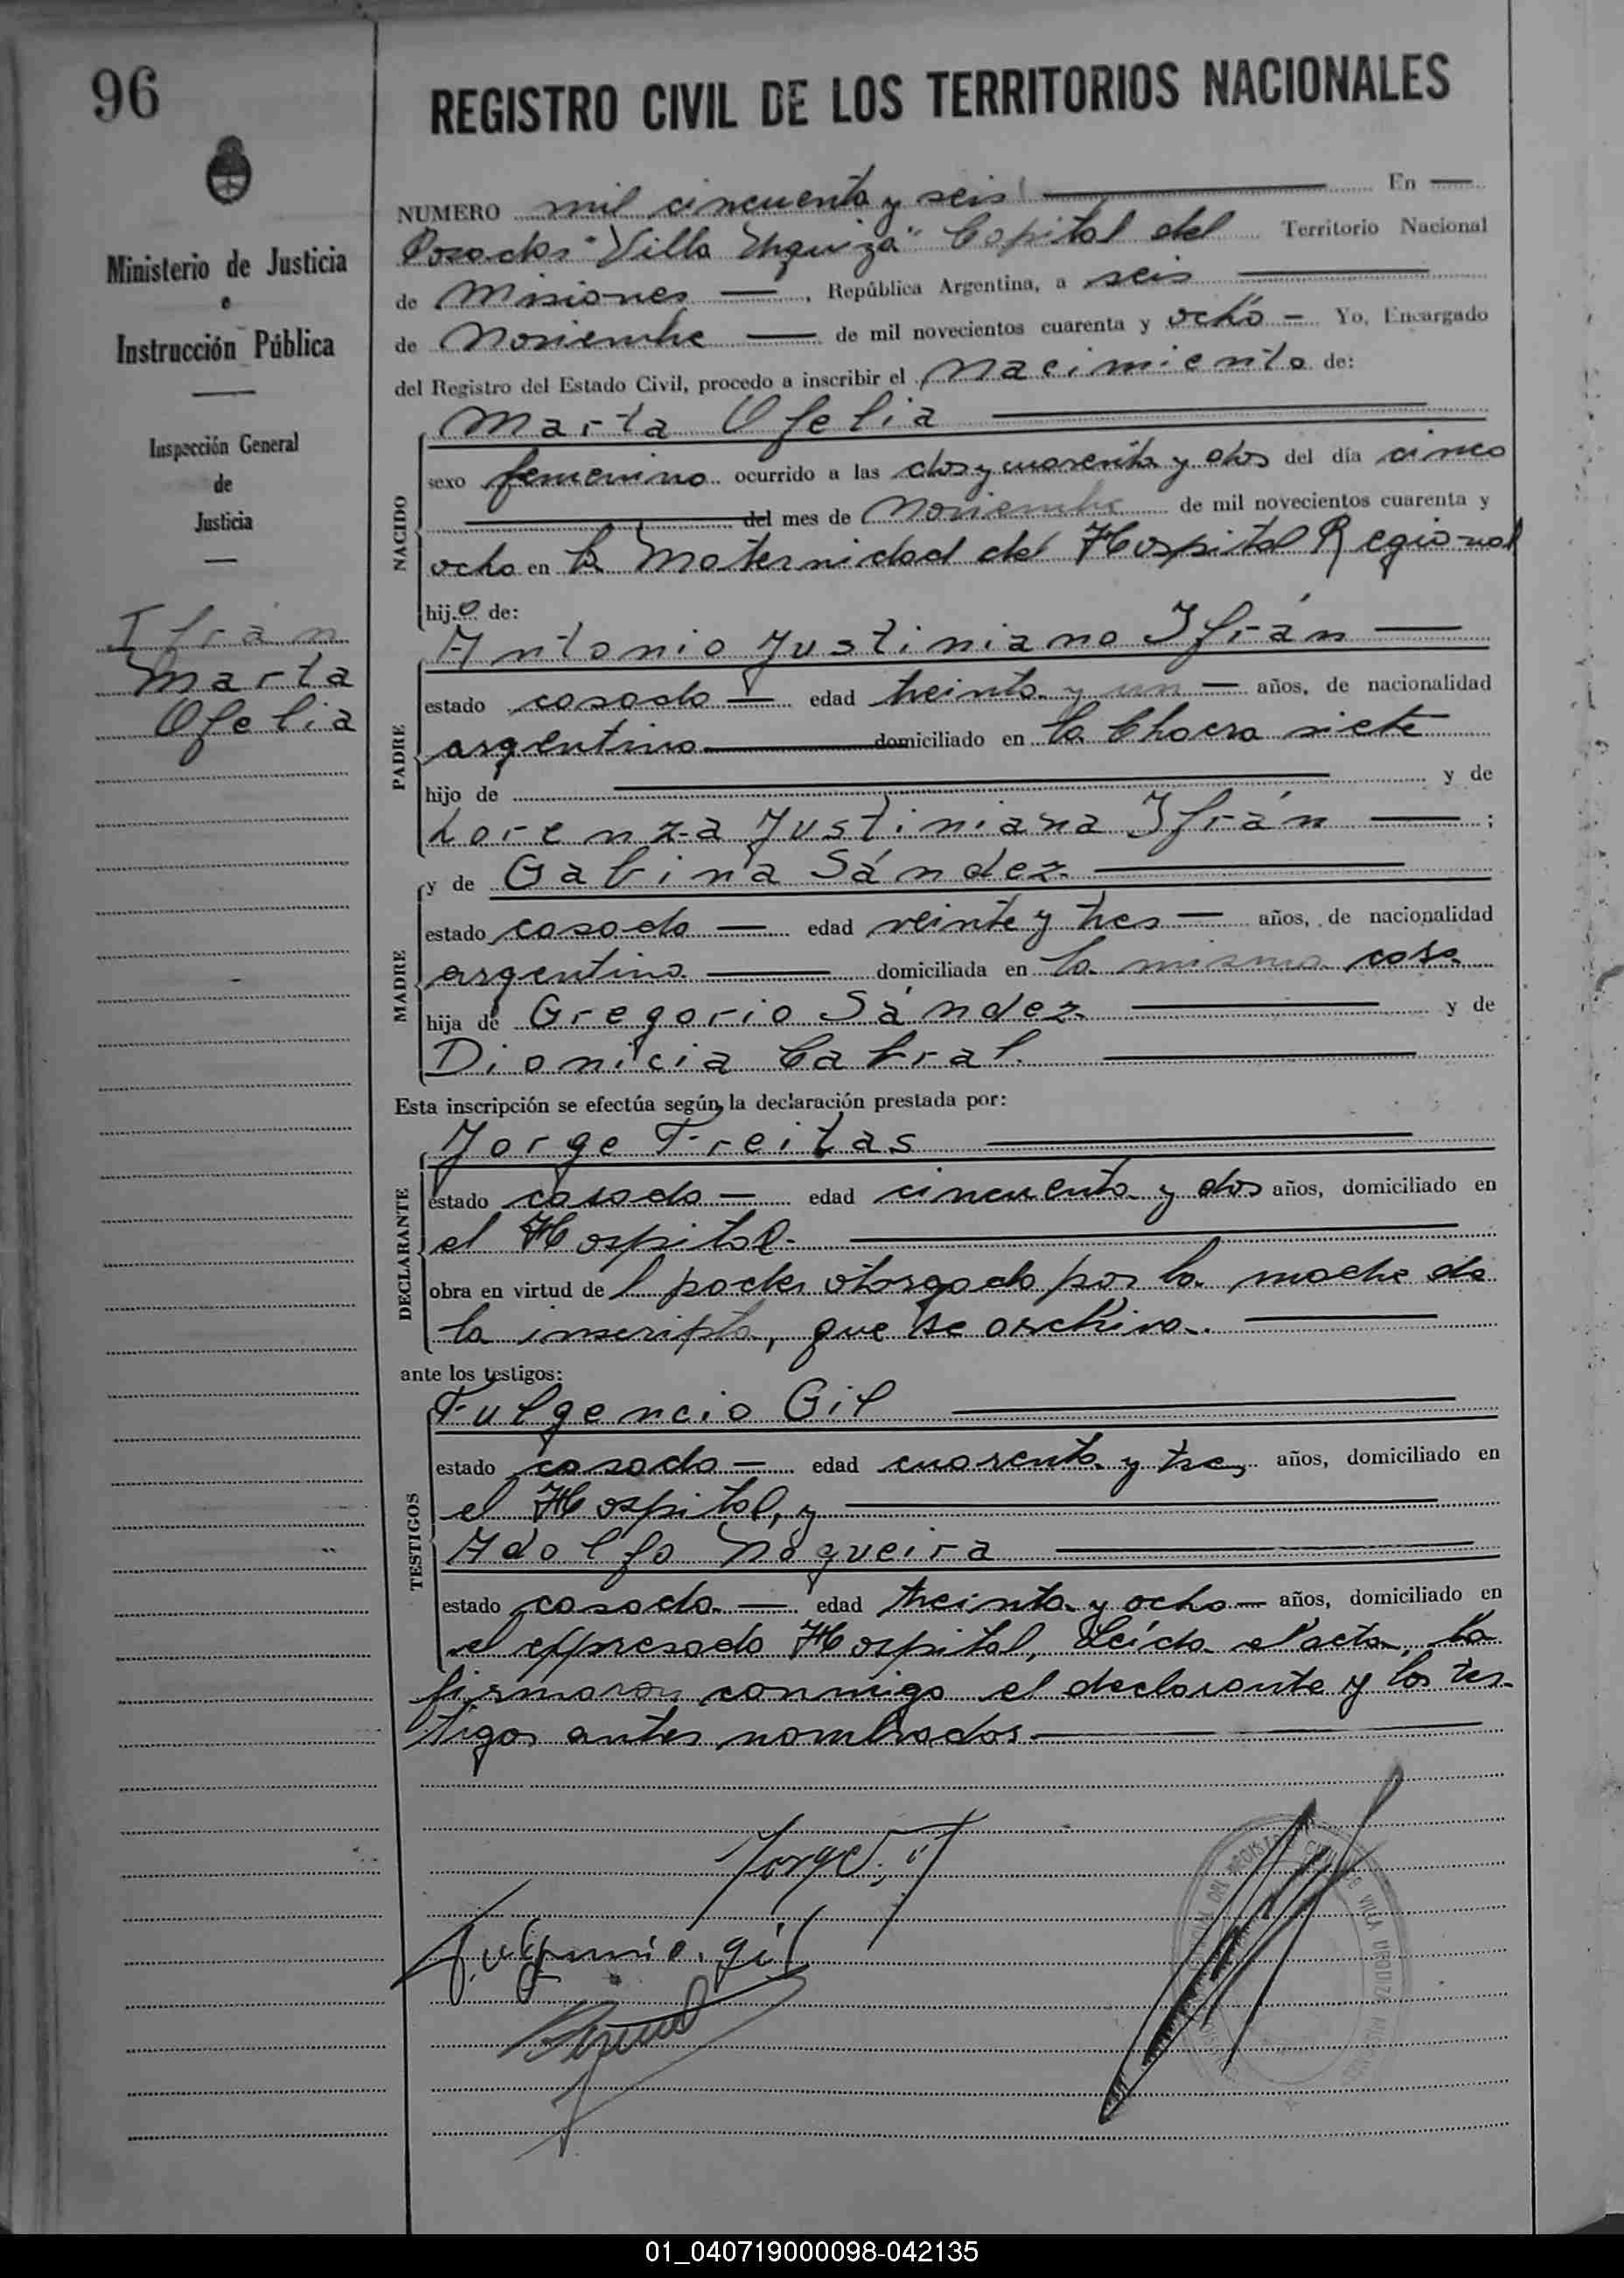 96
REGISTRO CIVIL DE LOS TERRITORIOS NACIONALES
Ministerio de Justicia
e
Instrucción Pública
Inspección General
de
Justicia
Ifrán
Marta
Ofelia
NUMERO mil cincuenta y seis En
Posadas "Villa Urquiza" Capital del Territorio Nacional
de Misiones, República Argentina, a seis
de Noviembre de mil novecientos cuarenta y ocho Yo, Encargado
del Registro del Estado Civil, procedo a inscribir el nacimiento de:
NACIDO
Marta Ofelia
sexo femenino ocurrido a las dos y cuarenta y dos del día cinco
del mes de Noviembre de mil novecientos cuarenta y
ocho en la Maternidad del Hospital Regional
hij.a de:
PADRE
Antonio Justiniano Ifrán
estado casado edad treinta y un años, de nacionalidad
argentino domiciliado en la Chacra siete
hijo de y de
Lorenza Justiniana Ifrán ;
y de Gabina Sández
MADRE
estado casada edad veinte y tres años, de nacionalidad
argentina domiciliada en la misma casa
hija de Gregorio Sández y de
Dionicia Cabral.
Esta inscripción se efectúa según la declaración prestada por:
DECLARANTE
Jorge Freitas
estado casado edad cincuenta y dos años, domiciliado en
el Hospital.
obra en virtud de l poder otorgado por la madre de
la inscripta, que se archiva.
ante los testigos:
TESTIGOS
Fulgencio Gil
estado casado edad cuarenta y tres años, domiciliado en
el Hospital, y
Adolfo Nogueira
estado casado edad treinta y ocho años, domiciliado en
el expresado Hospital, Leída el acta, la
firmaron conmigo el declarante y los tes-
tigos antes nombrados.
Jorge
Fulgencio. gil
REGISTRO CIVIL DE VILLA URQUIZA MISIONES
01_040719000098-042135